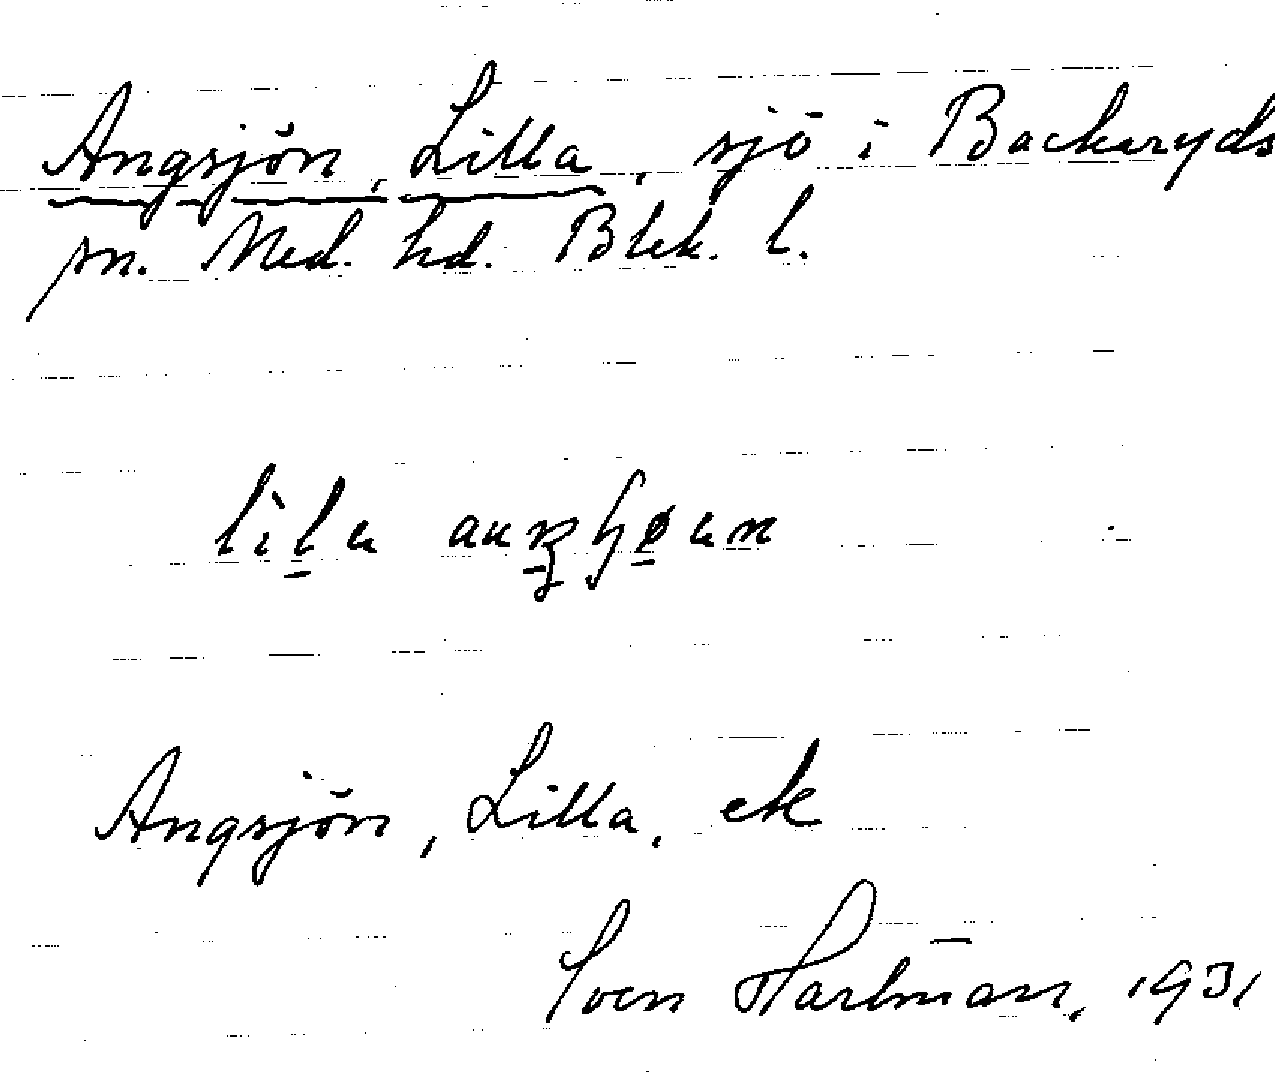 Angsjön, Lilla, sjö i Backaryds
sn. Med. hd. Blek. l.
lila
Angsjön, Lilla, ek
Sven Hartman, 1931